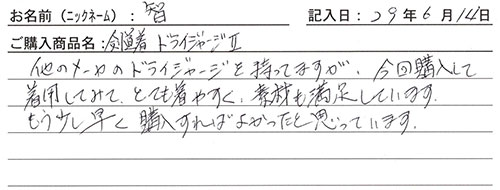 お名前（ニックネーム）：智 記入日：29年6月14日
ご購入商品名：剣道着 ドライジャージⅡ
他のメーカのドライジャージを持ってますが、今回購入して
着用してみて、とても着やすく、素材も満足しています。
もう少し早く購入すればよかったと思っています。